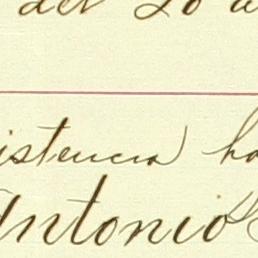 del 20
istencia ha
Antonio